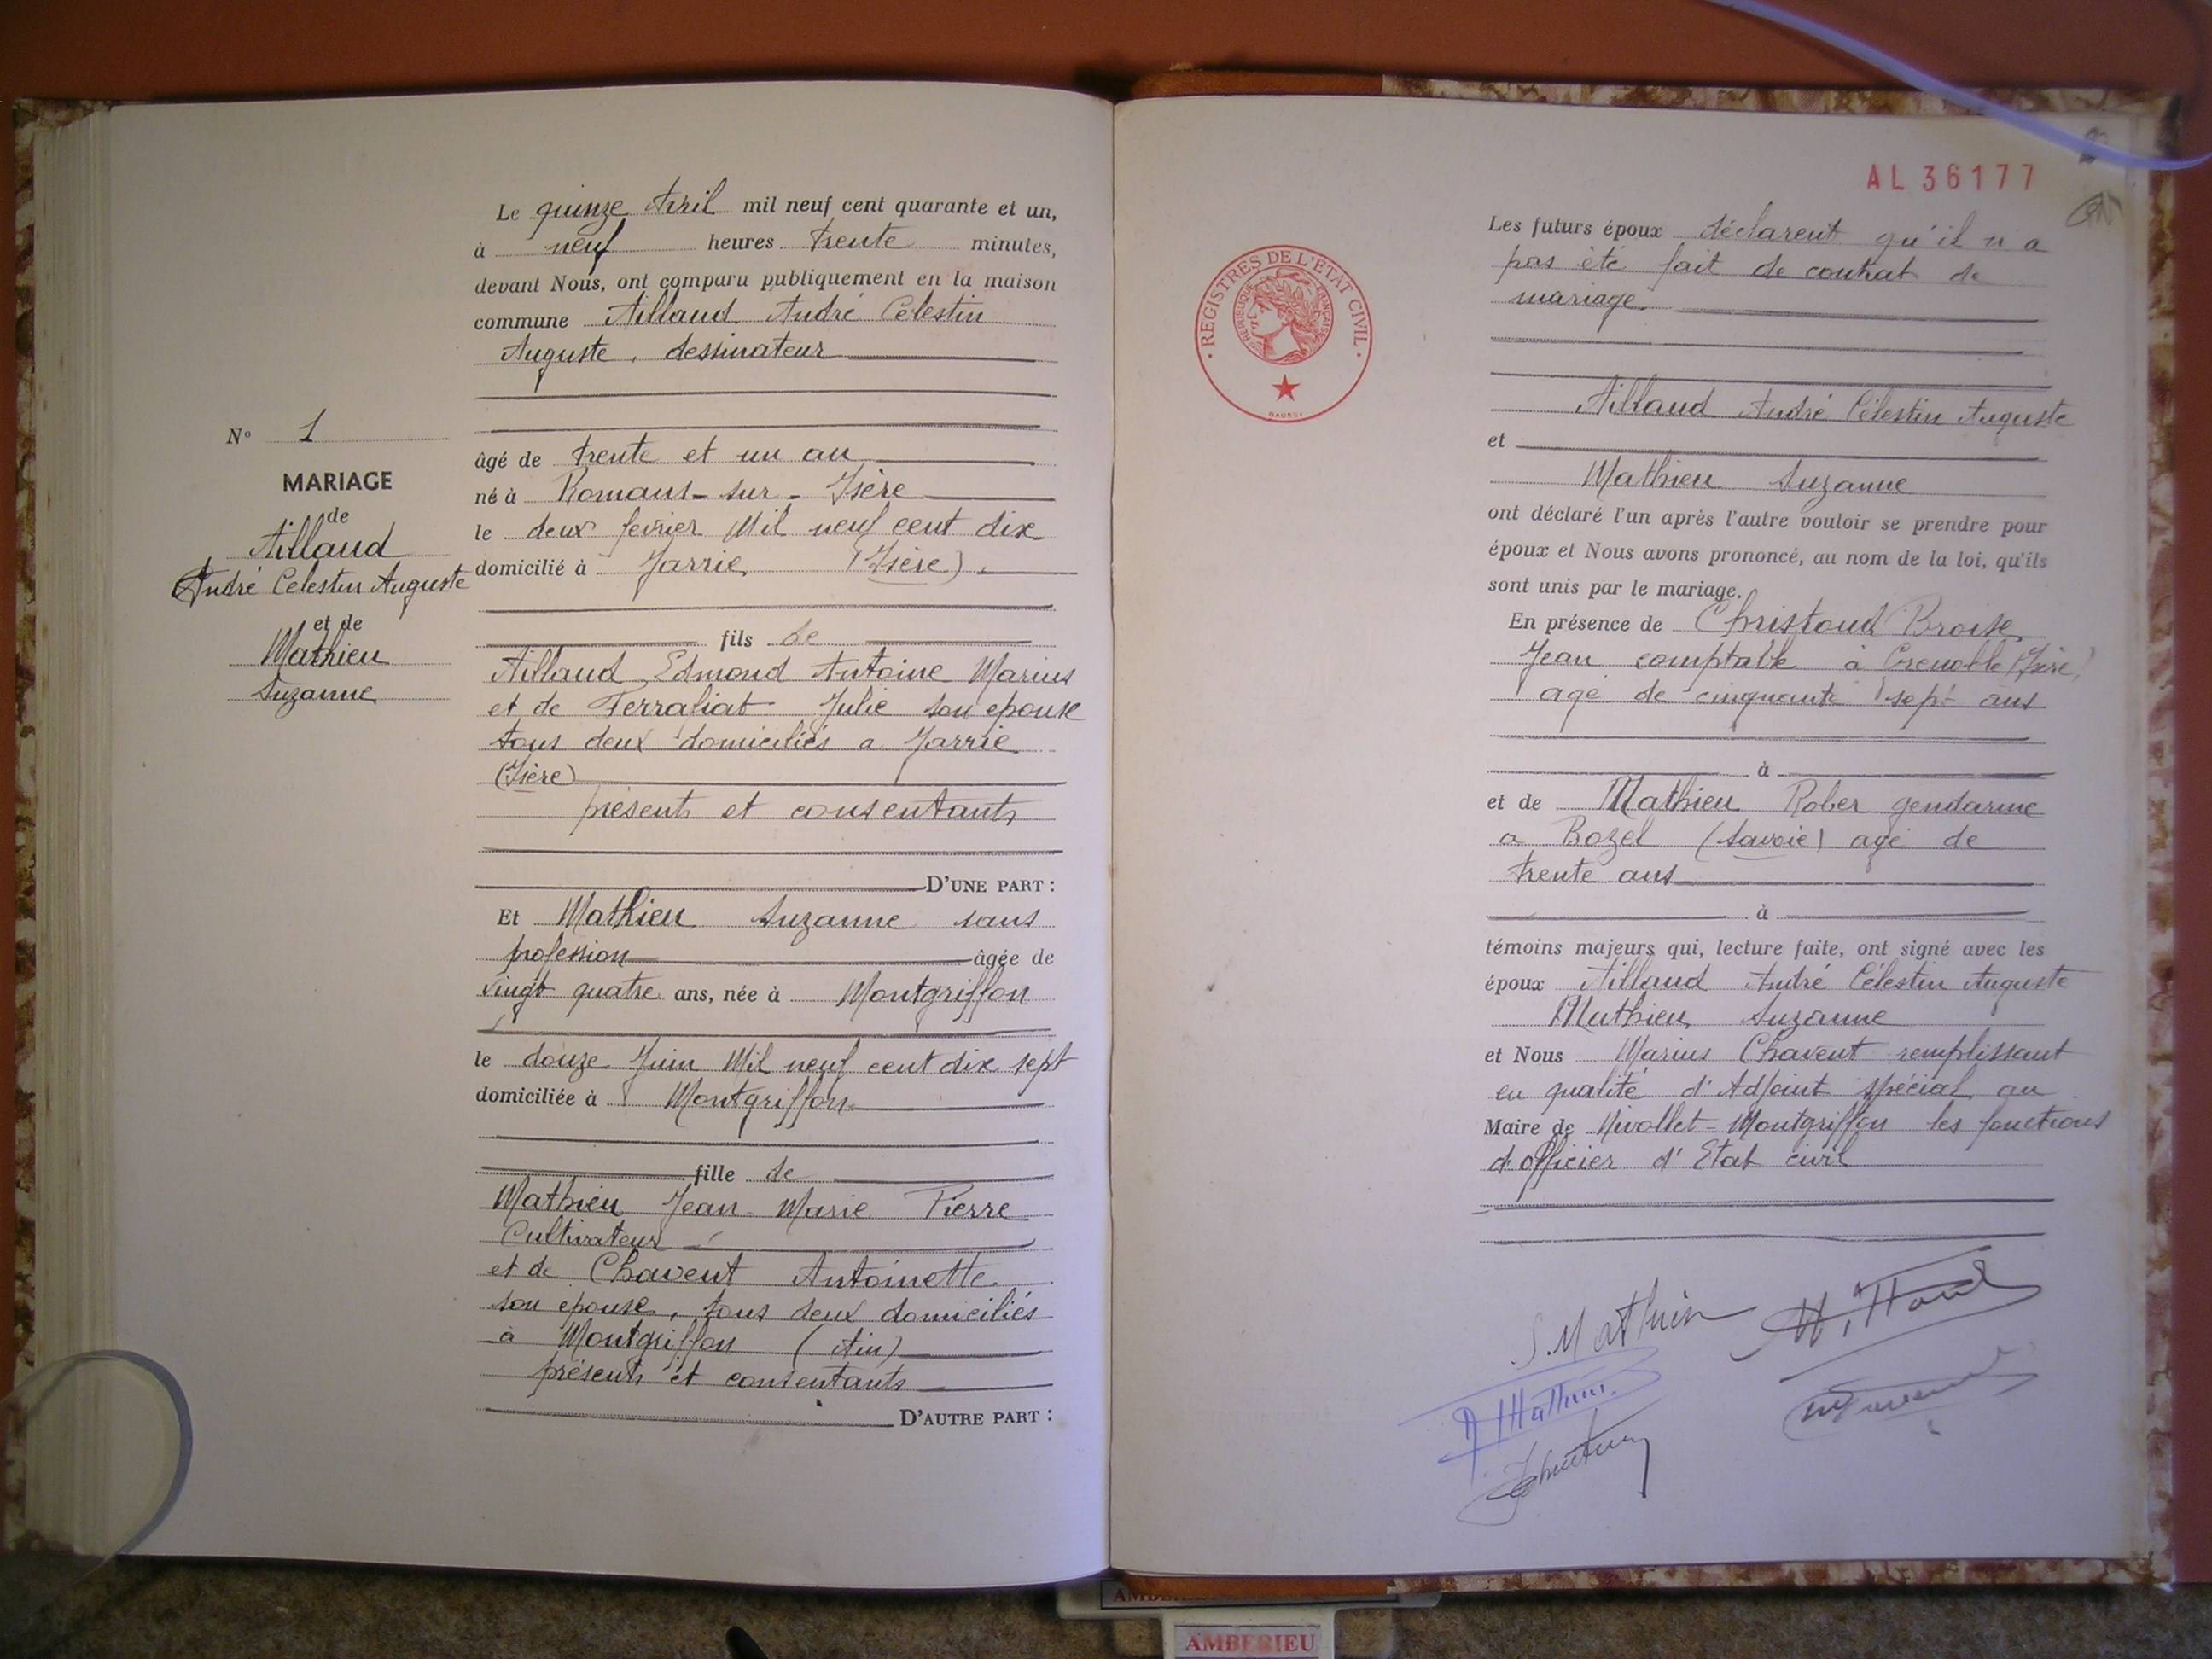 Le quinze Avril mil neuf cent quarante et un,
à neuf heures trente minutes,
devant Nous, ont comparu publiquement en la maison
commune Aillaud André Célestin
Auguste, dessinateur
N° 1
MARIAGE
de
Aillaud
André Celestin Auguste
et de
Mathieu
Suzanne
âgé de trente et un an
né à Romans-sur-Isère
le deux fevrier Mil neuf cent dix
domicilié à Jarrie (Isère).
fils de
Aillaud Edmond Antoine Marius
et de Ferraliat Julie son epouse
tous deux domiciliés a Jarrie
(Isère)
présents et consentants
D'UNE PART :
Et Mathieu Suzanne sans
profession âgée de
vingt quatre ans, née à Montgriffon
le douze Juin Mil neuf cent dix sept
domiciliée à Montgriffon
fille de
Mathieu Jean Marie Pierre
Cultivateur
et de Chavent Antoinette
son epouse, tous deux domiciliés
à Montgriffon (Ain)
présents et consentants
D'AUTRE PART :
AL 36177
REGISTRES DE L'ÉTAT CIVIL
RÉPUBLIQUE FRANÇAISE
Les futurs époux déclarent qu'il n'a
pas été fait de contrat de
mariage.
Aillaud André Célestin Auguste
et
Mathieu Suzanne
ont déclaré l'un après l'autre vouloir se prendre pour
époux et Nous avons prononcé, au nom de la loi, qu'ils
sont unis par le mariage.
En présence de Christoud Broise
Jean comptable à Grenoble (Isère)
agé de cinquante sept ans
à
et de Mathieu Rober gendarme
a Bozel (Savoie) agé de
trente ans
à
témoins majeurs qui, lecture faite, ont signé avec les
époux Aillaud André Célestin Auguste
Mathieu Suzanne
et Nous Marius Chavent remplissant
en qualité d'Adjoint spécial au
Maire de Nivollet-Montgriffon les fonctions
d'officier d'Etat civil
S. Mathieu
AMBERIEU